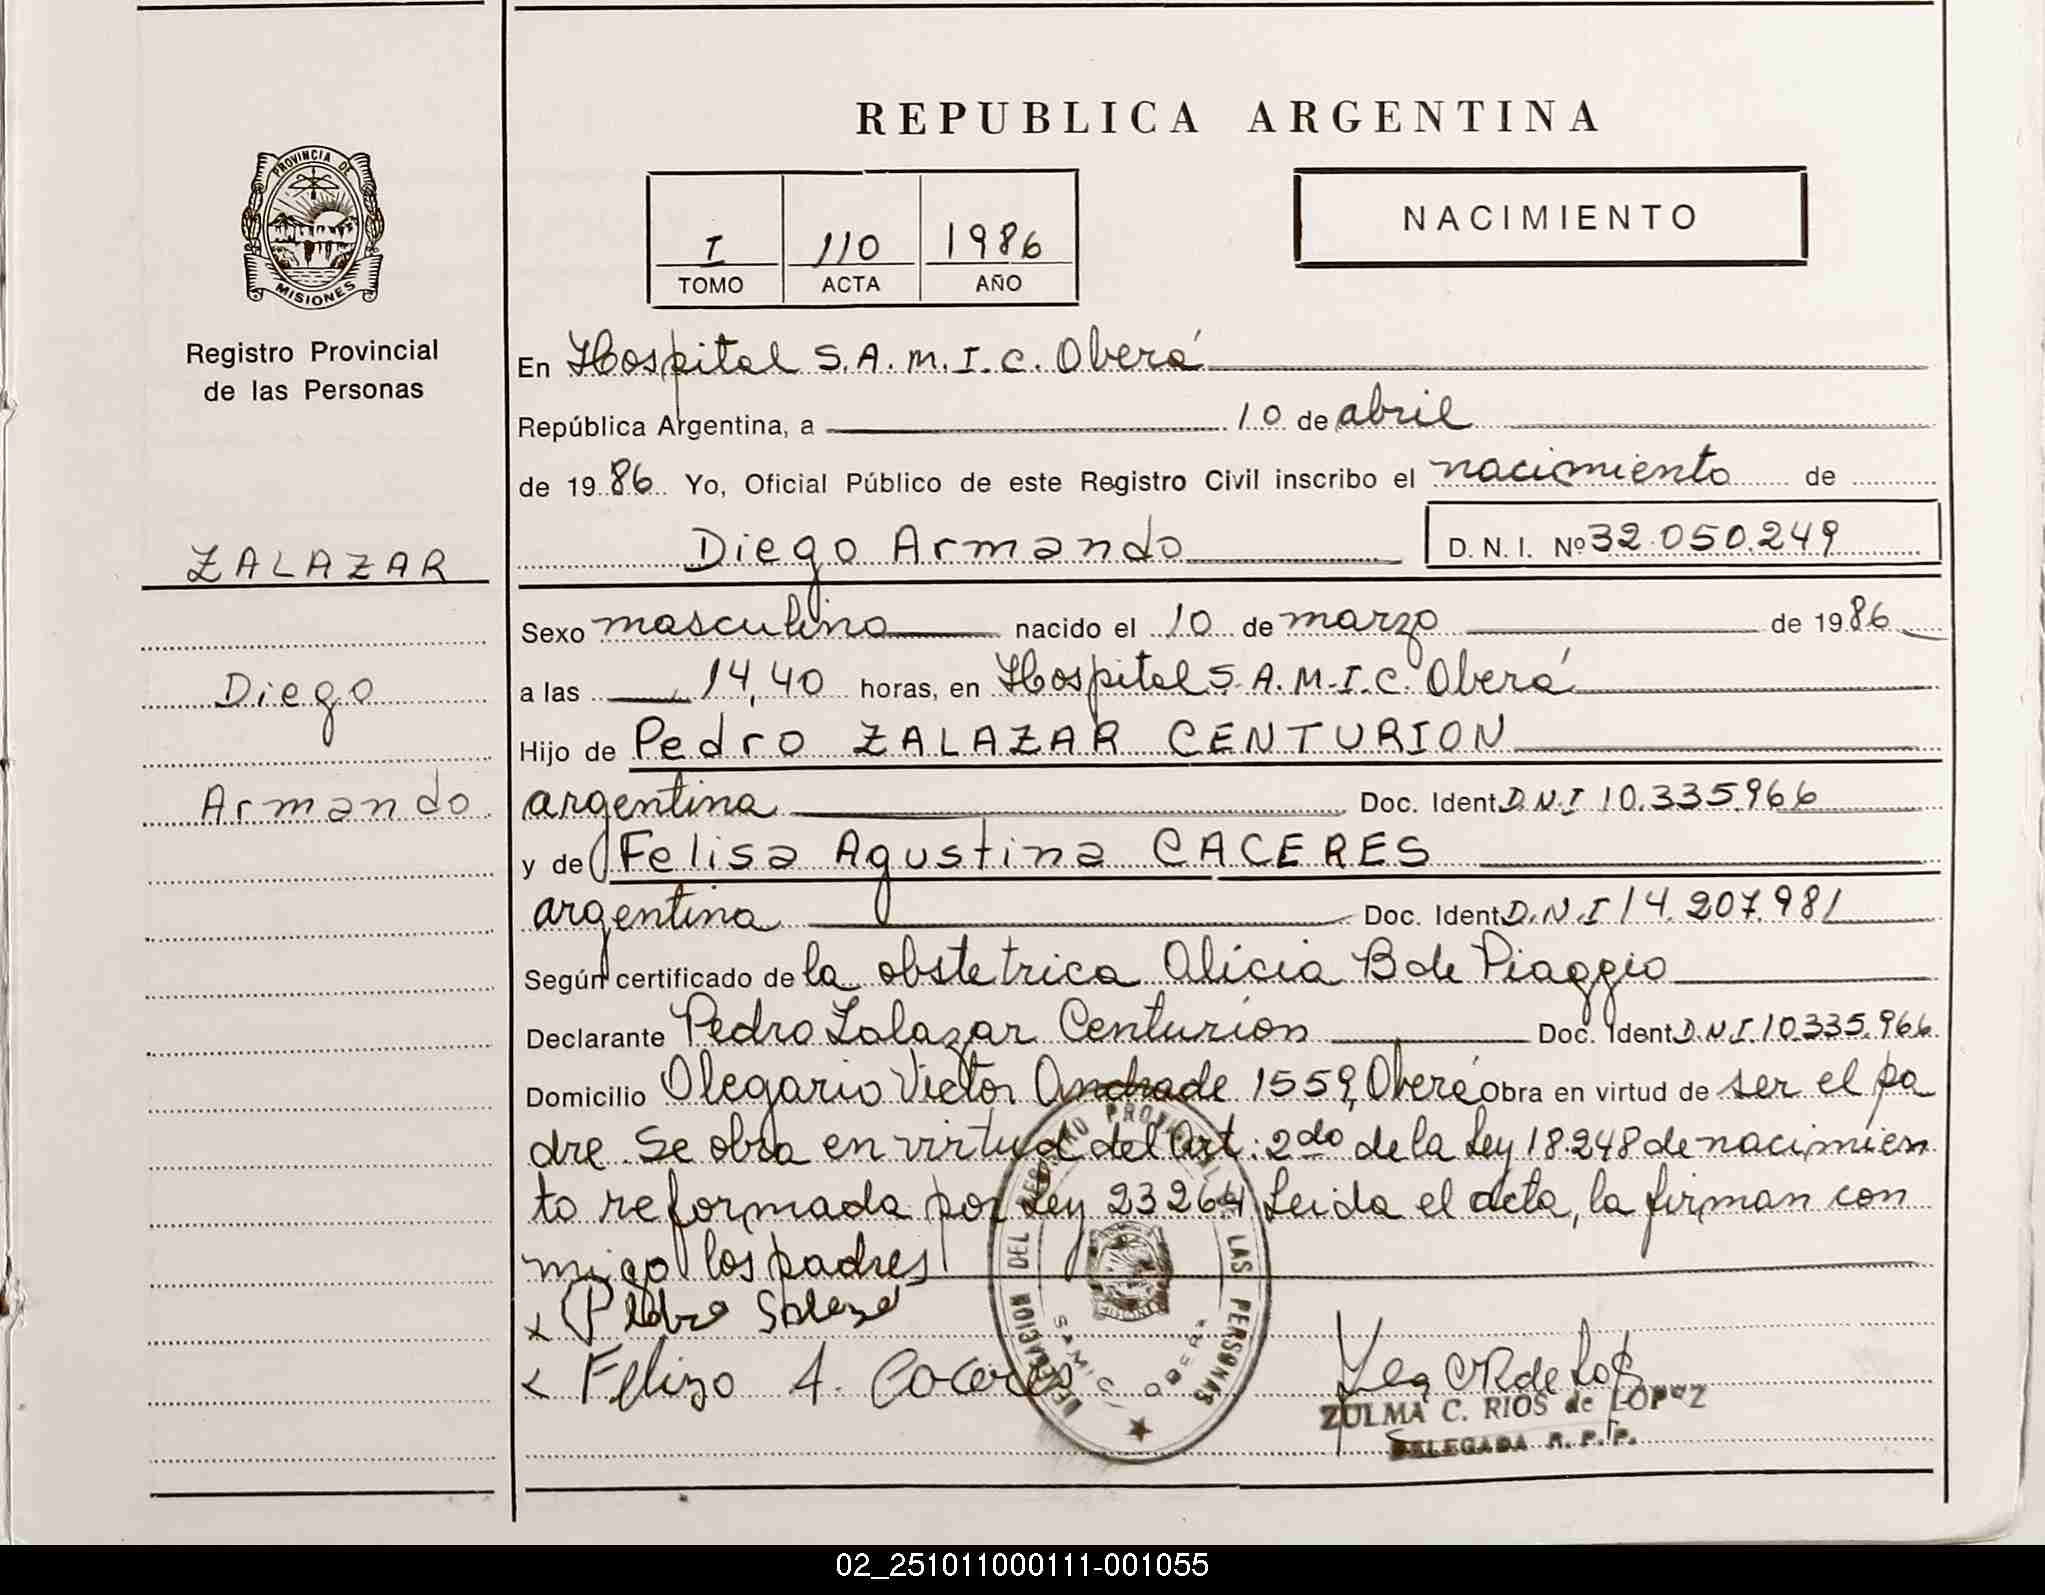 REPUBLICA ARGENTINA
PROVINCIA DE
MISIONES
Registro Provincial
de las Personas
ZALAZAR
Diego
Armando
I 110 1986
TOMO ACTA AÑO
NACIMIENTO
En Hospital S.A.M.I.C. Oberá
República Argentina, a 10 de abril
de 1986 Yo, Oficial Público de este Registro Civil inscribo el nacimiento de
Diego Armando D. N. I. Nº 32.050.249
Sexo masculino nacido el 10 de marzo de 1986
a las 14,40 horas, en Hospital S.A.M.I.C. Oberá
Hijo de Pedro ZALAZAR CENTURION
argentina Doc. Ident. D.N.I 10.335.966
y de Felisa Agustina CACERES
argentina Doc. Ident. D.N.I 14.207.981
Según certificado de la obstetrica Alicia B de Piaggio
Declarante Pedro Zalazar Centurion Doc. Ident. D.N.I. 10.335.966
Domicilio Olegario Victor Andrade 1559, Oberá Obra en virtud de ser el pa
dre. Se obra en virtud del Art. 2do de la Ley 18.248 de nacimien
to reformada por Ley 23264 Leida el acta, la firman con
migo los padres
x Pedro
x Felisa A. Caceres
DELEGACION DEL REGISTRO PROVINCIAL DE LAS PERSONAS
SAMIC OBERA
ZULMA C. RIOS de LOPEZ
DELEGADA R. P. P.
02_251011000111-001055